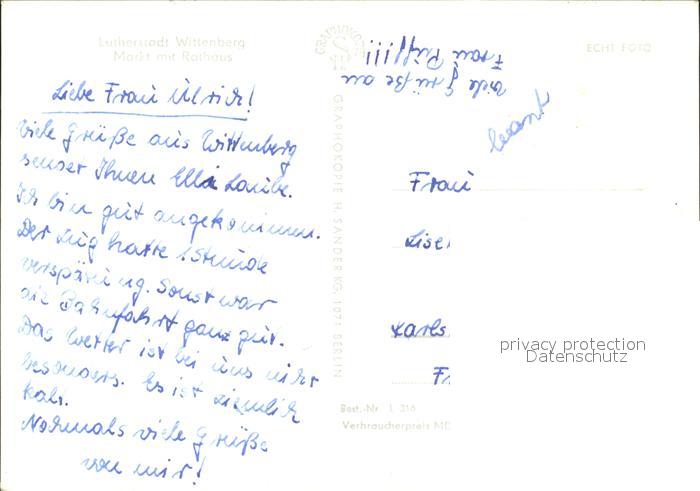 Lutherstadt Wittenberg
Markt mit Rathaus
Liebe Frau Ulrich!
Viele Grüße aus Wittenberg
senset Ihnen Ella Laube.
Ich bin gut angekommen.
Der Zug hatte 1 Stunde
verspätung. Sonst war
die Bahnfahrt ganz gut.
Das Wetter ist bei uns nicht
besonders. Es ist ziemlich
kalt.
Nochmals viele Grüße
von mir!
GRAPHOKOPIE H. SANDER KG 1071 BERLIN
ECHT FOTO
Viele Grüße an
Frau
Frau
Lisel
Karls
Fr
privacy protection
Datenschutz
Best.-Nr L 316
Verbraucherpreis MD